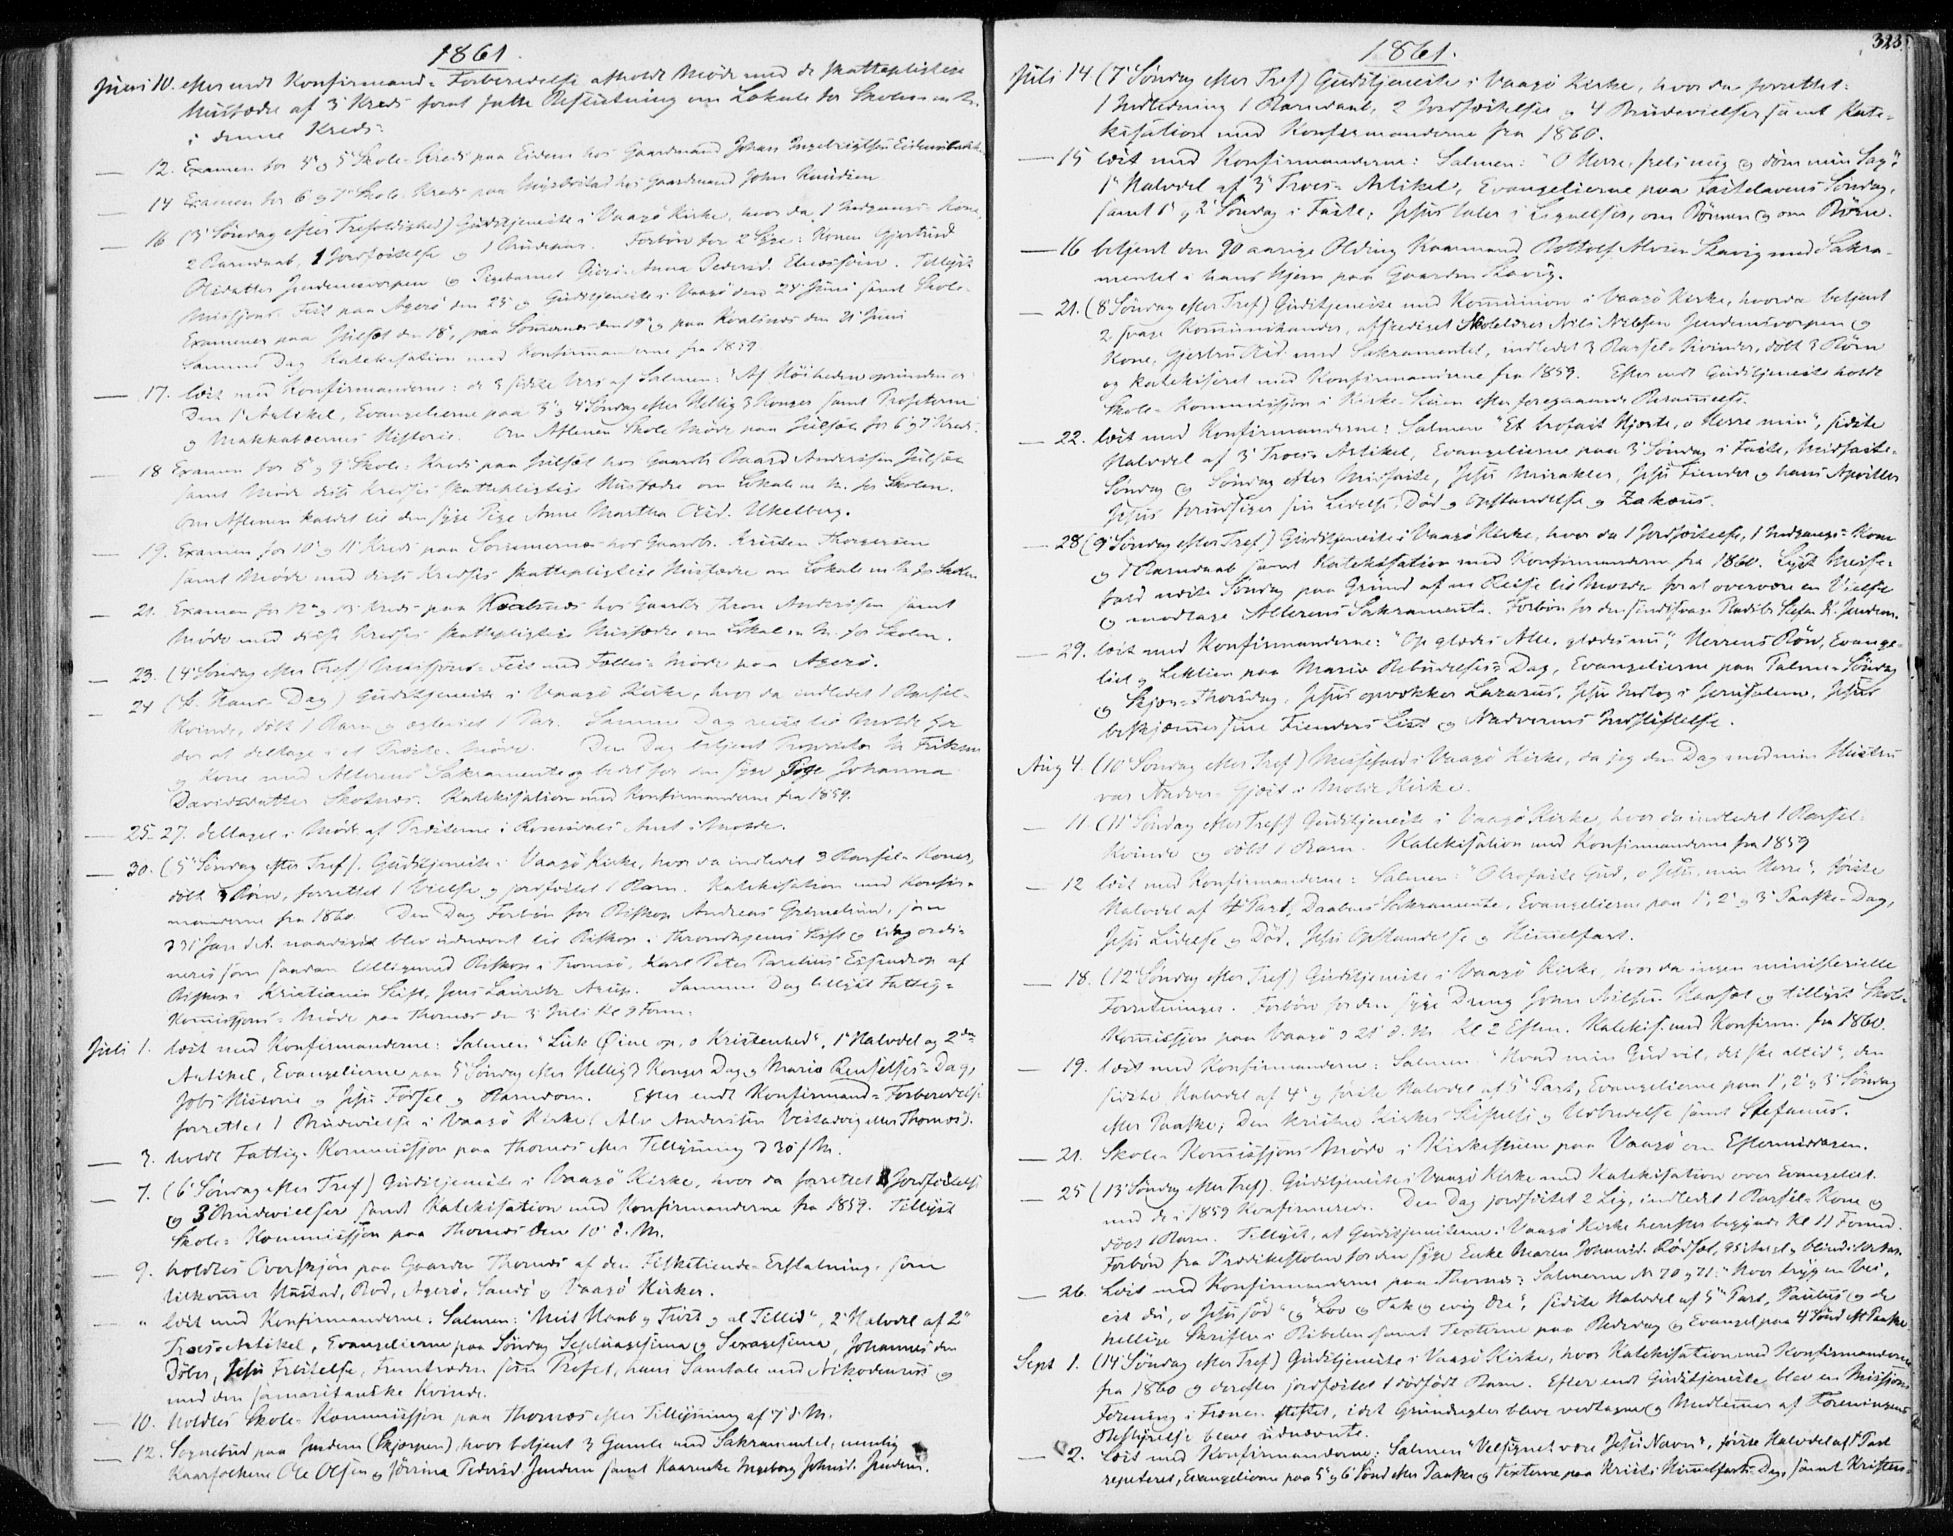 1861.
Juni 10. efter endt Konfirmand-Forberedelse afholdt Møde med de skattepligtige
Husfædre af 3' Kreds samt fatte Beslutning om Lokale for Skolen
i denne Kreds.
— 12. Examen for 4' og 5' Skole-Kreds paa Eidem hos Gaardmand Johan Ingebrigtsen Eidemsbakke
— 14 Examen for 6' og 7' Skole-Kreds paa hos Gaardmand John Knudsen
— 16 (3' Søndag efter Trefoldighed) Gudstjeneste i Vaagø Kirke, hvor da 1 Indgangs-Kone,
2 Barndaab, 1 Jordfæstelse og 1 Forbøn for 2 Syge: Konen Gjertrud
Olsdatter Jendemsvorpen og Pigebarnet Anna Pedersd. Tillyst
Missjons-Fest paa Agerø den 23' og Gudstjeneste i Vaagø den 24' Juni samt Skole-
Examener paa Julset den 18', paa Sommernes den 19' og paa Kvalsnes den 21' Juni
Samme Dag Katekisation med Konfirmanderne fra 1859
— 17. læst med Konfirmanderne: de 3 sidste Vers af Salmen: "Af Høiheden oprunden er
Den 1' Artikel, Evangelierne paa 3' og 4' Søndag efter Hellig 3 Konger samt Profeterne
og Makkabæernes Historie. Om Aftenen Skole-Møde paa Julset for 6' og 7' Kreds.
— 18 Examen for 8' og 9' Skole-Kreds paa Julset hos Gaardb. Baard Andersen Julset
samt Møde disse Kredses skattepligtige Husfædre om Lokale m. M. for Skolen.
Om Aftenen kaldet til den syge Pige Anne Martha Olsd. Ukelberg.
— 19. Examen for 10' og 11' Kreds paa Sommernes hos Gaardb. Kristen Thorgersen
samt Møde med disse Kredses skattepligtige Husfædre om Lokale m. M. for Skolen
— 21. Examen for 12' og 13' Kreds paa Kvalsnæs hos Gaardb. Thron Andersen samt
Møde med disse Kredses skattepligtige Husfædre om Lokale m. M. for Skolen.
— 23. (4' Søndag efter Tref) Missjons-Fest med Fælles-Møde paa Agerø.
— 24 (St. Hans-Dag) Gudstjeneste i Vaagø Kirke, hvor da indledet 1 Barsel-
Kvinde, døbt 1 Barn og ægteviet 1 Par. Samme Dag reist til Molde for
der at deltage i et Præste-Møde. Den Dag betjent Proprietær M Friksen
og Kone med Alterens Sakramente og bedet for den syge Pige Johanna
Davidsdatter Skotnæs. Katekisation med Konfirmanderne fra 1859.
— 25-27. deltaget i Møde af Præsterne i Romsdals Amt i Molde.
— 30. (5' Søndag efter Tref). Gudstjeneste i Vaagø Kirke, hvor da indledet 3 Barsel-Koner,
døbt 3 Børn, forrettet 1 Vielse og jordfæstet 1 Barn. Katekisation med Konfir-
manderne fra 1860. Den Dag Forbøn for Biskop Andreas Grimelund, som
d 31' Jan. d.A. naadigst blev udnævnt til Biskop i Throndhjems Stift og idag ordi-
neres som saadan tilligemed Biskop i Tromsø, Karl Peter Parelius Essendrop af
Biskop i Kristiania Stift, Jens Lauritz Arup. Samme Dag tillyst Fattig-
Kommissjons-Møde paa Thornes den 3' Juli Kl 9 Form.
Juli 1. læst med Konfirmanderne: Salmen "Luk Øine op, o Kristenhed", 1' Halvdel og 2den
Artikel, Evangelierne paa 5' Søndag efter Hellig 3 Konger Dag og Mariæ Renselses-Dag,
Jobs Historie og Jesu Fødsel og Barndom. Efter endt Konfirmand-Forberedelse
forrettet 1 Brudevielse i Vaagø Kirke (Alv Andersen Vestadvig eller Thornes).
— 3. holdt Fattig-Kommissjon paa Thornes efter Tillysning d 30 f M.
— 7. (6' Søndag efter Tref) Gudstjeneste i Vaagø Kirke, hvor da forrettet 1 Jordfæstelse
og 3 Brudevielser samt Katekisation med Konfirmanderne fra 1859. Tillyst
Skole-Kommissjon paa Thornes den 10' d. M.
— 9. holdtes Overskjøn paa Gaarden Thornes af den Fisketiende-Erstatning, som
tilkommer Hustad, Bod, Agerø, Sandø og Vaagø Kirker.
— " læst med Konfirmanderne: Salmen: "Mit Haab og Trøst og al Tillid", 2' Halvdel af 2'
Troes-Artikel, Evangelierne paa Søndag Septuagesima og Sexagesima, Johannes den
Døber, Jesu Fristelse, Fremtræden som Profet, hans Samtale med Nikodemus og
med den samaritanske Kvinde.
— 10. holdtes Skole-Kommissjon paa Thornes efter Tillysning af 7' d. M.
— 12. Sognebud paa Jendem (Skjorpen), hvor betjent 3 Gamle med Sakramentet, nemlig
Kaarfolkene Ole Olsen og Jørrina Pedersd. Jendem samt Kaarenke Ingeborg Johnsd. Jendem.
323.
1861.
Juli 14 (7' Søndag efter Tref) Gudstjeneste i Vaagø Kirke, hvor da forrettet:
1 Indledning 1 Barndaab, 2 Jordfæstelser og 4 Brudevielser samt Kate-
kisation med Konfirmanderne fra 1860.
— 15 læst med Konfirmanderne: Salmen: "O Herre, frels mig og døm min Sag".
1' Halvdel af 3' Troes-Artikel, Evangelierne paa Fastelavens Søndag,
samt 1' og 2' Søndag i Faste; Jesus taler i Lignelser, om Bønnen og om Børn.
— 16 betjent den 90 aarige Olding Kaarmand Bottolf Alvsen Skavig med Sakra-
mentet i hans Hjem paa Gaarden Skavig.
— 21. (8' Søndag efter Tref) Gudstjeneste med Kommunion i Vaagø Kirke, hvorda betjent
2 svage Kommunikander, affældiget Skolelærer Nils Nilssen Jendemsvorpen og
Kone, Gjertru Olsd. med Sakramentet, indledet 3 Barsel-Kvinder, døbt 3 Børn
og katekiseret med Konfirmanderne fra 1859. Efter endt Gudstjeneste holdt
Skole-Kommissjon i Kirke-Stuen efter foregaaende Berammelse.
— 22. læst med Konfirmanderne: Salmen "Et trofast Hjerte, o Herre min", sidste
Halvdel af 3' Troes-Artikel, Evangelierne paa 3' Søndag i Faste, Midfaste-
Søndag og Søndag efter Midfaste, Jesu Mirakler, Jesu Fiender og hans Apostler
Jesus forudsiger sin Lidelse, Død og Opstandelse og Zakæus.
— 28 (9' Søndag efter Tref) Gudstjeneste i Vaagø Kirke, hvor da 1 Jordfæstelse, 1 Indgangs-Kone
og 1 Barndaab samt Katekisation med Konfirmanderne fra 1860. Lyst Messe-
fald næste Søndag paa Grund af en Reise til Molde for at overvære en Vielse
og modtage Alterens Sakramente. Forbøn for den sindssvage Jendem.
— 29. læst med Konfirmanderne: "Op glædes Alle, glædes nu", Herrens Bøn, Evange-
liet og Lektien paa Mariæ Bebudelses-Dag, Evangelierne paa Palme-Søndag
og Skjær-Thorsdag, Jesus opvækker Lazarus, Jesu Indtog i Jerusalem, Jesus
beskjæmmer sine Fienders List og Nadverens Indstiftelse.
Aug 4. (10' Søndag efter Tref) Messefald i Vaagø Kirke, da jeg den Dag med min Hustru
var Nadver-Gjæst i Molde Kirke.
— 11. (11' Søndag efter Tref) Gudstjeneste i Vaagø Kirke, hvor da indledet 1 Barsel-
Kvinde og døbt 1 Barn. Katekisation med Konfirmanderne fra 1859
— 12 læst med Konfirmanderne: Salmen: "O trofaste Gud, o Jesu, min Herre", første
Halvdel af 4' Part, Daabens Sakramente, Evangelierne paa 1', 2' og 3' Paaske-Dag,
Jesu Lidelse og Død, Jesu Opstandelse og Himmelfart.
— 18. (12' Søndag efter Tref) Gudstjeneste i Vaagø Kirke, hvor da ingen ministerielle
Forretninger. Forbøn for den syge Dreng John Nilsen og tillyst Skole-
Kommissjon paa Vaagø d 21' d. M. Kl 2 Efterm. Katekis. med Konfirm. fra 1860.
— 19. læst med Konfirmanderne: Salmen "Hvad min Gud vil, det ske altid", den
sidste Halvdel af 4' og første Halvdel af 5' Part, Evangelierne paa 1', 2' og 3' Søndag
efter Paaske; Den kristne Kirkes Stiftelse og Udbredelse samt Stefanus.
— 21. Skole-Kommissjons-Møde i Kirkestuen paa Vaagø om Eftermiddagen.
— 25 (13' Søndag efter Tref). Gudstjeneste i Vaagø Kirke med Katekisation over Evangeliet
med de i 1859 Konfirmerede. Den Dag jordfæstet 2 Lig, indledet 1 Barsel-Kone og
døbt 1 Barn. Tillyst, at Gudstjenesterne i Vaagø Kirke herefter begynde Kl 11 Formid.
Forbøn fra Prædikestolen for den syge Enke Maren Johansd. Rødsæt,
— 26. Læst med Konfirmanderne paa Thornes: Salmerne Nr 70 og 71: "Hvor tryg en Vei,
est du, o Jesu sød" og "Lov og Tak og evig Ære", sidste Halvdel af 5' Part, Paulus og de
hellige Skrifter i Bibelen samt Texterne paa Bededag og Evangel. paa 4' Sønd eft Paaske
Sept 1. (14' Søndag efter Tref) Gudstjeneste i Vaagø Kirke, hvor Katekisation med Konfirmanderne
fra 1860 og derefter jordfæstet 1 dødfødt Barn. Efter endt Gudstjeneste blev en Missjons-
Forening i Frænen stiftet, idet Grundregler bleve vedtagne og Medlemmer af Foreningens
Bestyrelse bleve udnævnte.
— 2. Læst med Konfirmanderne: Salmen "Velsignet være Jesu Navn", første Halvdel af 1' Part
repeteret, Evangelierne paa 5' og 6' Sønd efter Paaske og Texterne paa Kristi Himmelfarts-Dag, samt Kristen-